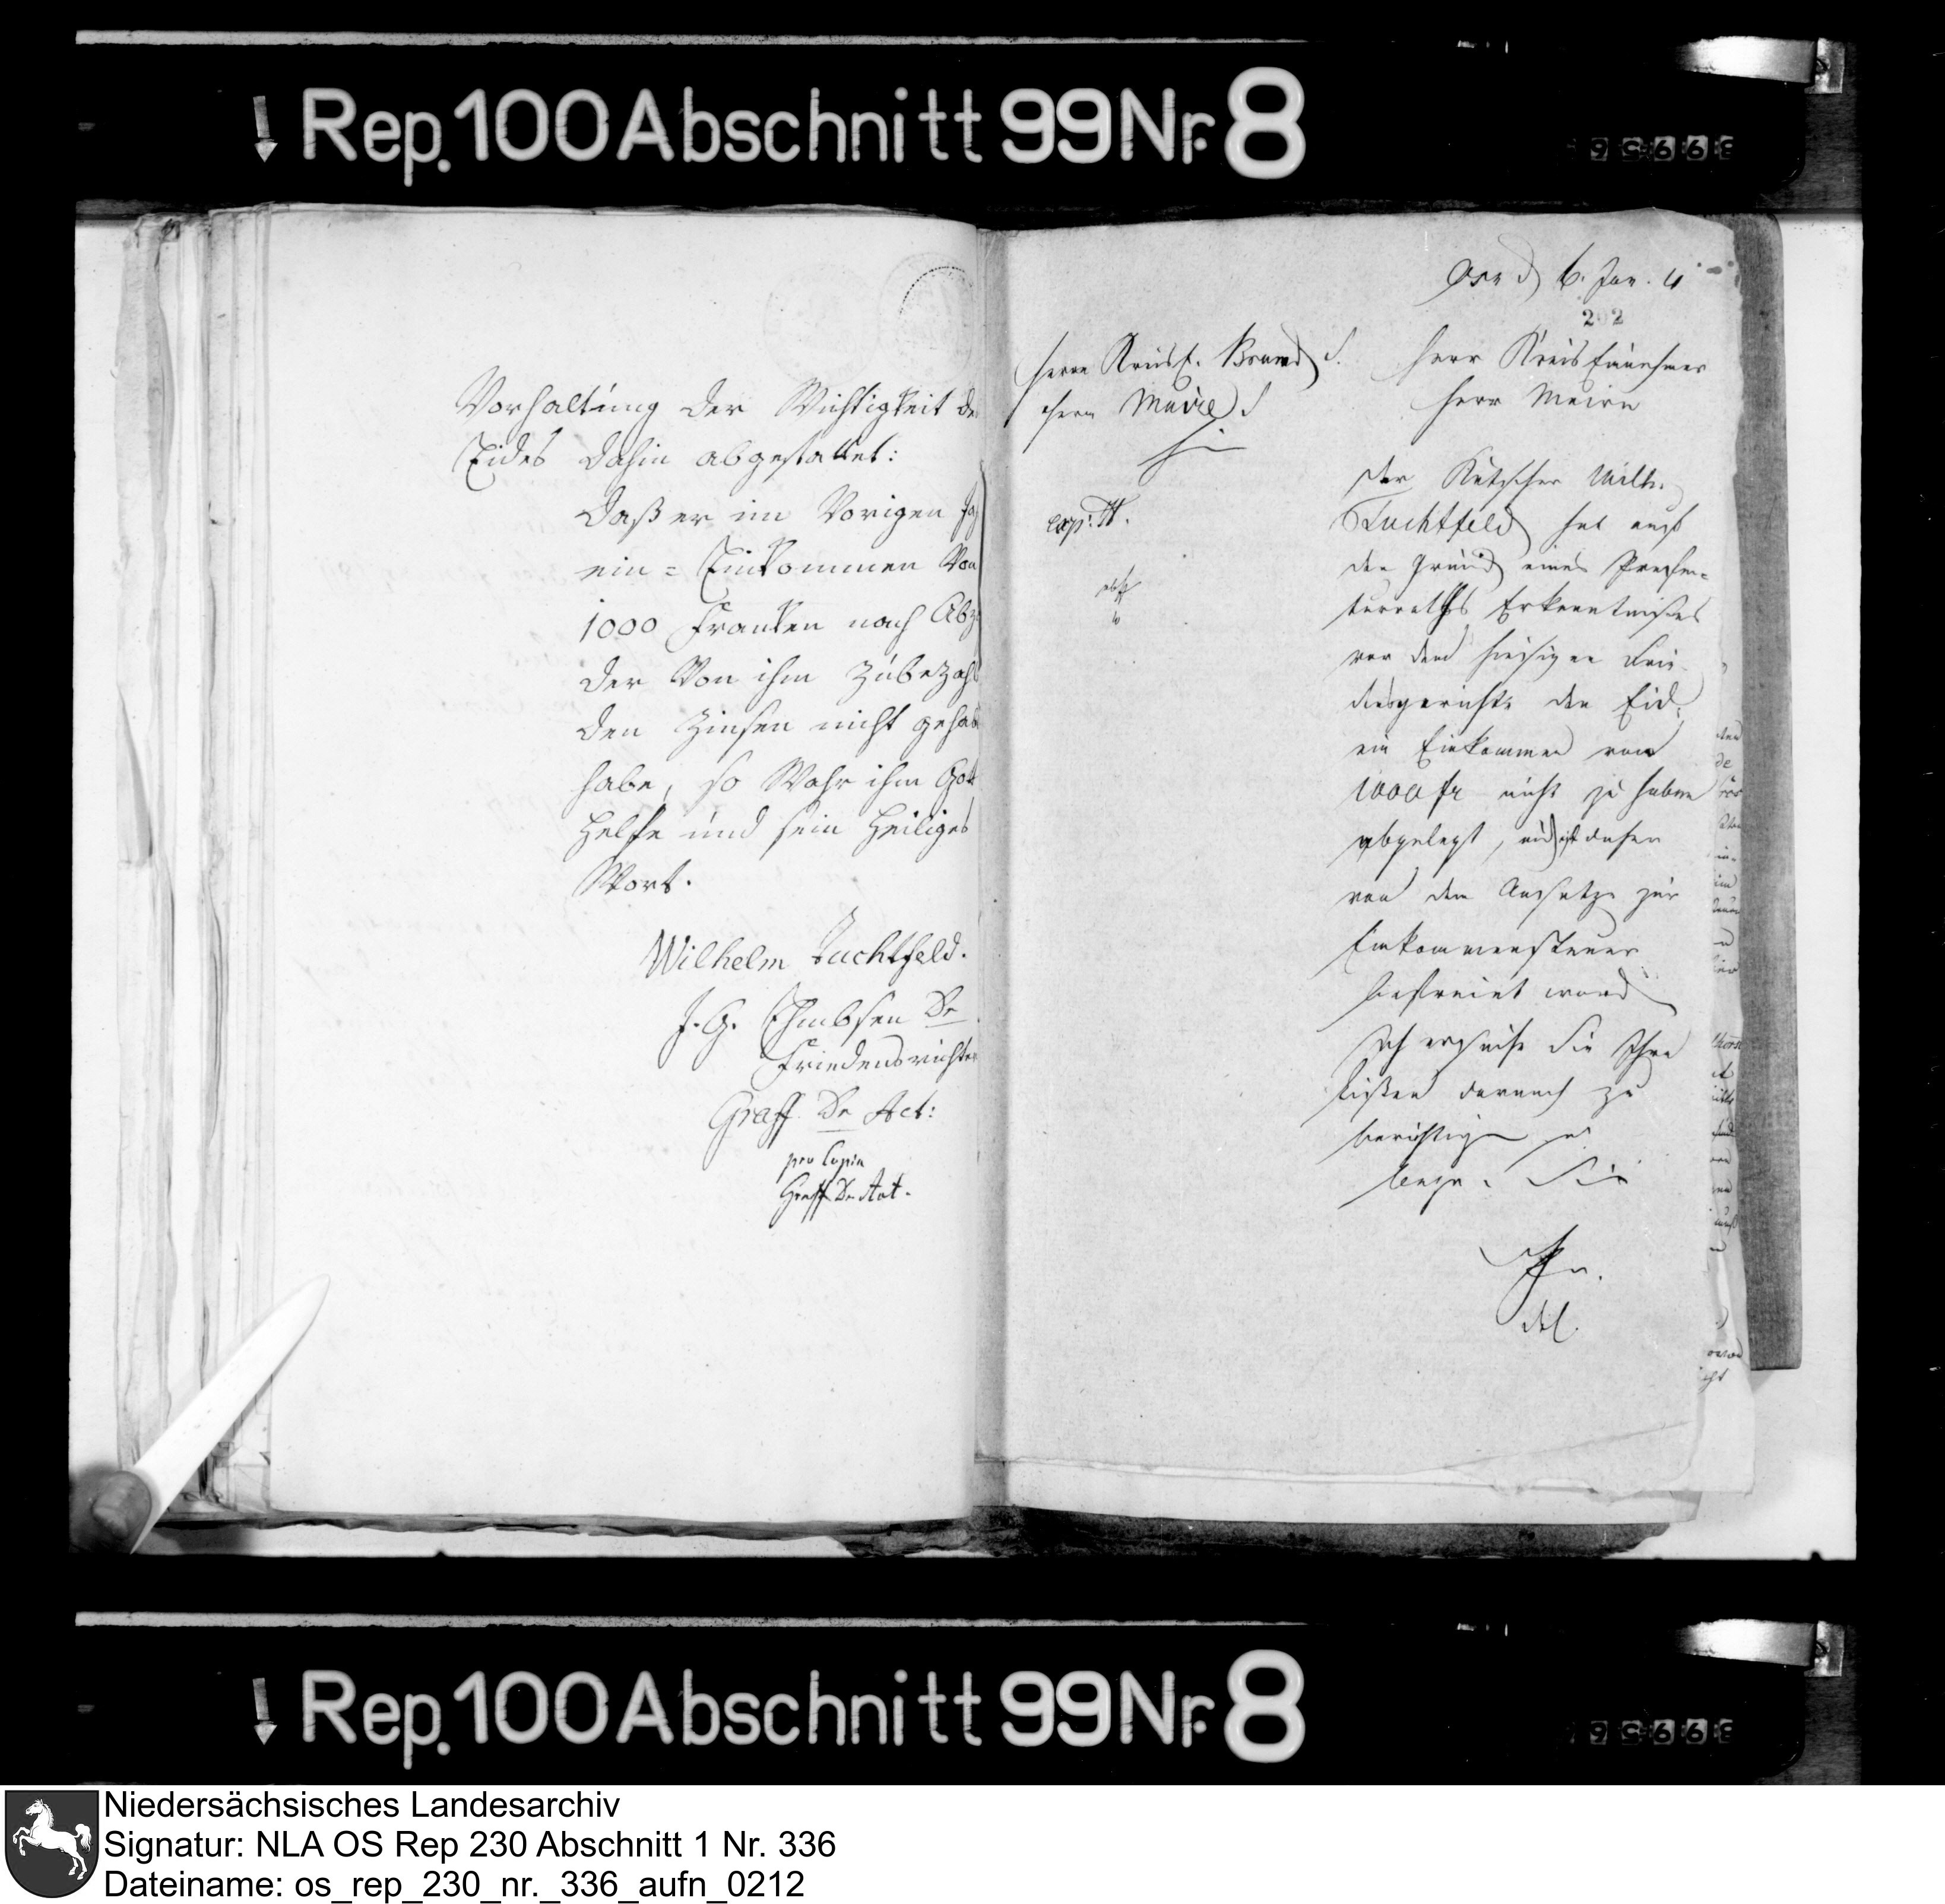 Rep. 100 Abschnitt 99 Nr. 8
Vorhaltung der Wichtigkeit de
Eides dahin abgestattet:
daß er im Vorigen Ja
ein = Einkommen Von
1000 Franken nach Abz
der Von ihm zubezahl
den Zinsen nicht gehabt
habe, so Wahr ihm Gott
helfe und sein heiliges
Wort.
Wilhelm Luchtfeld.
J. G. Ehmbsen Dr
Friedensrichter
Graff Dr Act:
pro Copia
Graff Dr Act.
Osn d 6. Jan. 11
202
Herrn Kreise. Brand
Herrn Maire
exp: H.
Herr Kreis Einnehmer
Herr Meire
Der Kutscher Wilh.
Luchtfeld hat auf
den Grund eines Praefec-
turraths Erkenntnißes
vor dem hiesigen Frie-
densgerichte den Eid,
ein Einkommen von
1000 fr nicht zu haben
abgelegt, und ist daher
von dem Ansatze zur
Einkommensteuer
befreiet word
Ich ersuche Sie Ihre
Listen darnach zu
berichtigen
Rep. 100 Abschnitt 99 Nr. 8
Niedersächsisches Landesarchiv
Signatur: NLA OS Rep 230 Abschnitt 1 Nr. 336
Dateiname: os_rep_230_nr._336_aufn_0212